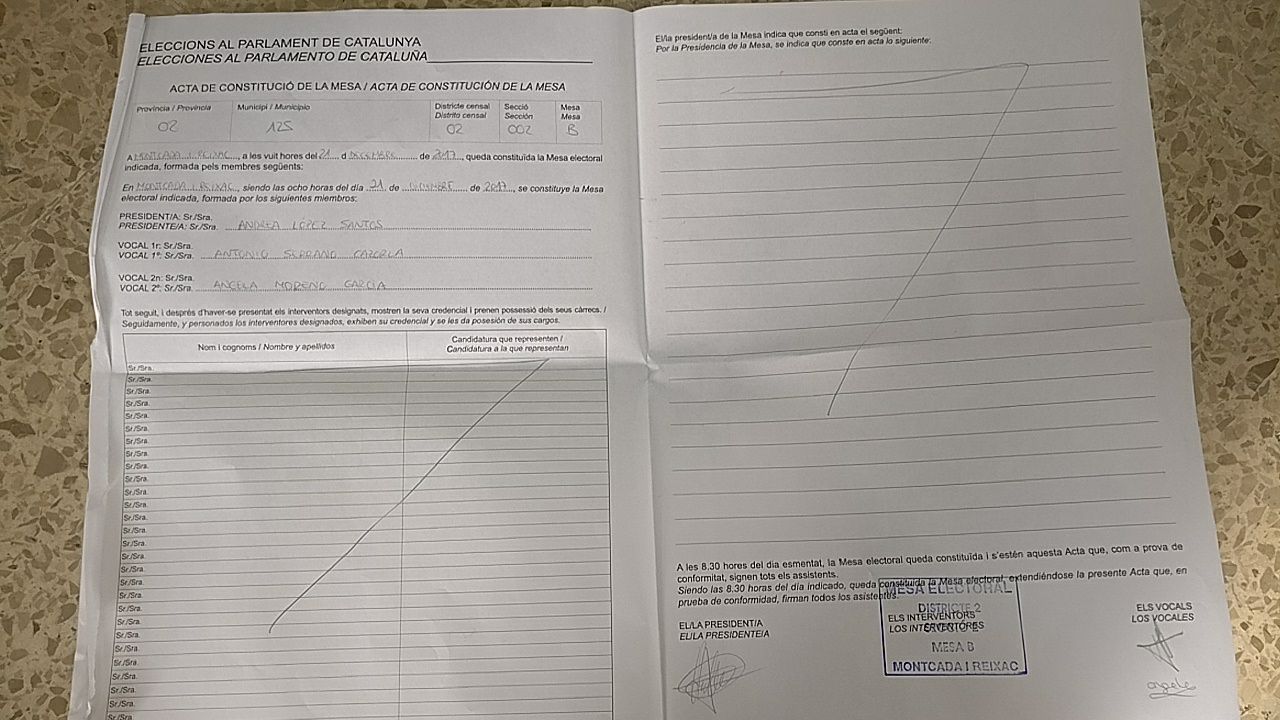 ELECCIONS AL PARLAMENT DE CATALUNYA
ELECCIONES AL PARLAMENTO DE CATALUÑA
ACTA DE CONSTITUCIÓ DE LA MESA / ACTA DE CONSTITUCIÓN DE LA MESA
Província / Provincia Municipi / Municipio Districte censal Secció Mesa
Distrito censal Sección Mesa
02 125 02 002 B
A MONTCADA I REIXAC, a les vuit hores del 21 d DECEMBRE de 2017, queda constituïda la Mesa electoral
indicada, formada pels membres següents:
En MONTCADA I REIXAC, siendo las ocho horas del día 21 de DICIEMBRE de 2017, se constituye la Mesa
electoral indicada, formada por los siguientes miembros:
PRESIDENT/A: Sr./Sra.
PRESIDENTE/A: Sr./Sra. ANDREA LÓPEZ SANTOS
VOCAL 1r: Sr./Sra.
VOCAL 1º: Sr./Sra. ANTONIO SERRANO CAZORLA
VOCAL 2n: Sr./Sra.
VOCAL 2º: Sr./Sra. ANGELA MORENO GARCIA
Tot seguit, i després d'haver-se presentat els interventors designats, mostren la seva credencial i prenen possessió dels seus càrrecs. /
Seguidamente, y personados los interventores designados, exhiben su credencial y se les da posesión de sus cargos.
Nom i cognoms / Nombre y apellidos Candidatura que representen /
Candidatura a la que representan
Sr./Sra.
Sr./Sra.
Sr./Sra.
Sr./Sra.
Sr./Sra.
Sr./Sra.
Sr./Sra.
Sr./Sra.
Sr./Sra.
Sr./Sra.
Sr./Sra.
Sr./Sra.
Sr./Sra.
Sr./Sra.
Sr./Sra.
Sr./Sra.
Sr./Sra.
Sr./Sra.
Sr./Sra.
Sr./Sra.
Sr./Sra.
Sr./Sra.
Sr./Sra.
Sr./Sra.
Sr./Sra.
Sr./Sra.
Sr./Sra.
Sr./Sra.
El/la president/a de la Mesa indica que consti en acta el següent:
Por la Presidencia de la Mesa, se indica que conste en acta lo siguiente:
A les 8.30 hores del dia esmentat, la Mesa electoral queda constituïda i s'estén aquesta Acta que, com a prova de
conformitat, signen tots els assistents.
Siendo las 8.30 horas del día indicado, queda constituida la Mesa electoral, extendiéndose la presente Acta que, en
prueba de conformidad, firman todos los asistentes.
EL/LA PRESIDENT/A
EL/LA PRESIDENTE/A
ELS INTERVENTORS
LOS INTERVENTORES
ELS VOCALS
LOS VOCALES
MESA ELECTORAL
DISTRICTE 2
MESA B
MONTCADA I REIXAC